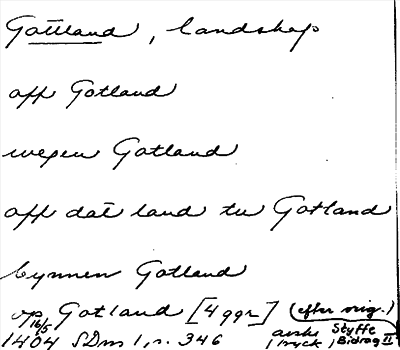 Gotland, landskap
opp Gotland
wegen Gotland
opp dat land tu Gotland
bynnen Gotland
op Gotland [4 ggr] (efter orig.)
16/5 1404 SDns 1, s. 346 avskr Styffe
i tryck, Bidrag II